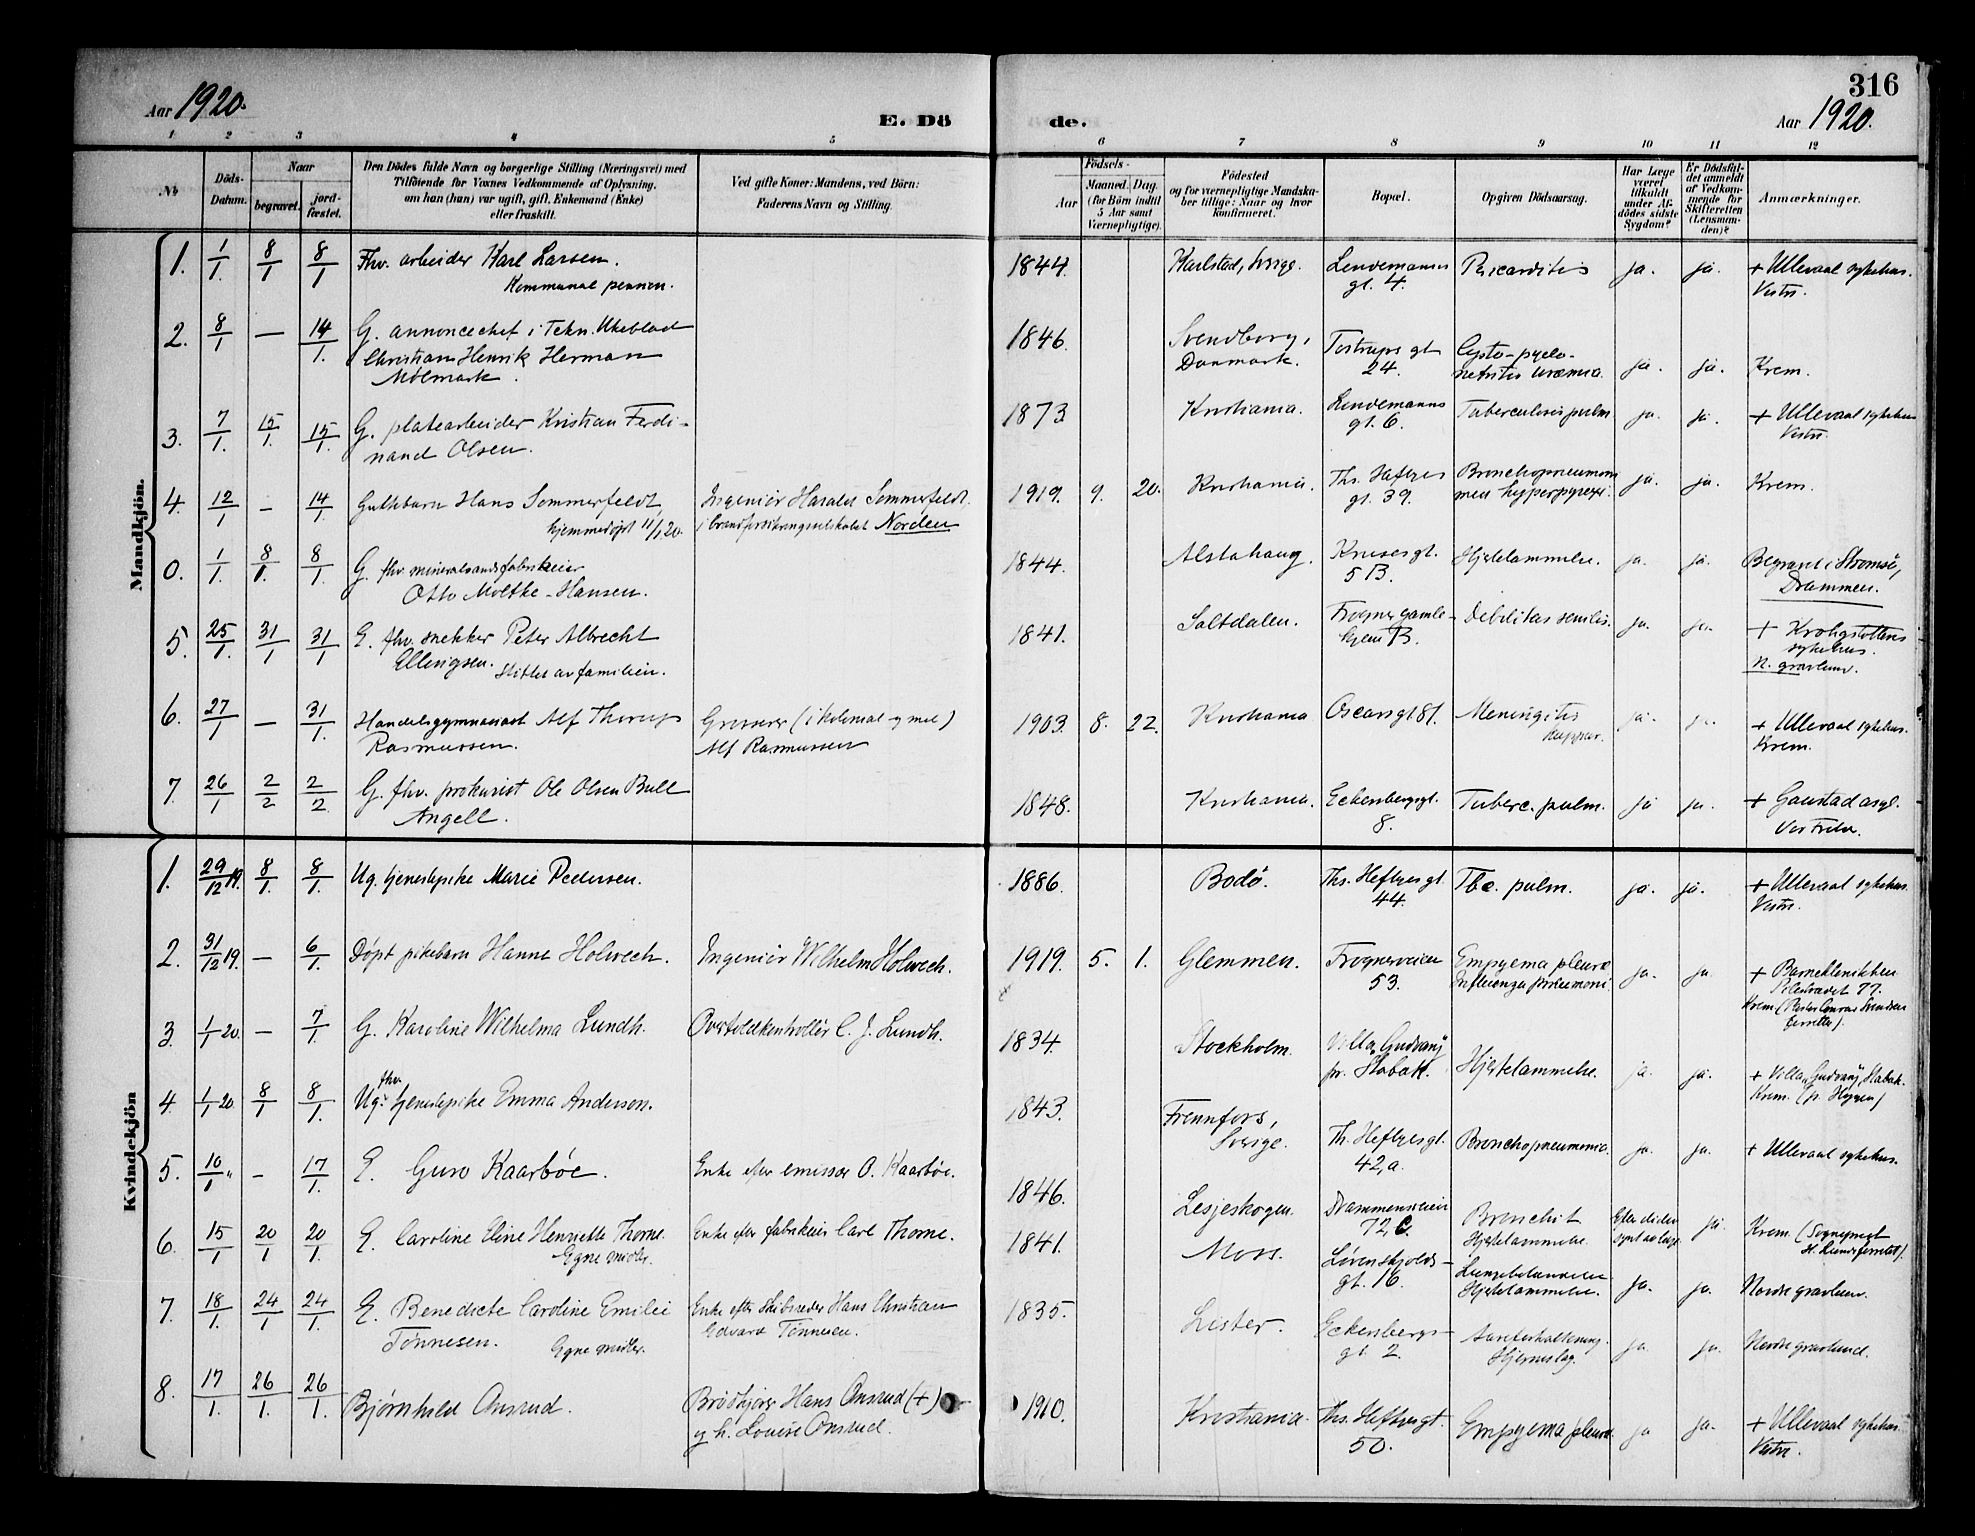 316
Aar 1920.
E. Dö
de.
Aar 1920.
1 2 3 4 5 6 7 8 9 10 11 12
No
Döds-
Datum.
Naar
begravet.
jord-
fæstet.
Den Dödes fulde Navn og borgerlige Stilling (Næringsvei) med
Tilföiende for Voxnes Vedkommende af Oplysning,
om han (hun) var ugift, gift, Enkemand (Enke)
eller fraskilt.
Ved gifte Koner: Mandens, ved Börn:
Faderens Navn og Stilling.
Födsels-
Aar
Maaned. Dag.
(for Börn indtil
5 Aar samt
Værnepligtige).
Födested
og for værnepligtige Mandska-
ber tillige: Naar og hvor
konfirmeret.
Bopæl.
Opgiven Dödsaarsag.
Har Læge
været
tilkaldt
under Af-
dödes sidste
Sygdom?
Er Dödsfal-
det anmeldt
af Vedkom-
mende for
Skifteretten
(Lensman-
den)?
Anmærkninger.
Mandkjön.
1. 1/1. 8/1 8/1 Fhv. arbeider Karl Larsen. 1844. Karlstad, Sverige. Lindemanns Pericarditis ja. ja. + Ullevaal sykehus.
Kommunal pension. gt. 4. Vestre.
2. 8/1 — 14/1. G. annoncechef i Tekn. Ukeblad 1846. Svendborg, Tostrups gt Cysto-pyelo-
Christian Henrik Herman Danmark. 24. nefritis uræmia. ja. ja. Krem.
Mølmark.
3. 7/1. 15/1. 15/1. G. platearbeider Kristian Ferdi- 1873 Kristiania. Lindemanns Tuberculosis pulm ja. ja. + Ullevaal sykehus
nand Olsen. gt. 6. Vestre.
4. 12/1 - 14/1. Guttebarn Hans Sommerfeldt, Ingeniør Harald Sommerfeldt. 1919. 9. 20. Kristiania. Ths. Heftyes Bronchopneumoni ja. ja. Krem.
hjemmedøpt 11/1.20. i brandforsikringsselskabet Norden gt. 39. med hyperpyrexi.
0. 1/1. 8/1. 8/1. G. fhv. mineralvandsfabrikeier 1844. Alstahaug. Kruses gt. Hjertelammelse. ja. ja. Begravet i Strømsø,
Otto Moltke-Hansen. 5 B. Drammen.
5. 25/1. 31/1 31/1 E. fhv. snekker Peter Albrecht 1841. Saltdalen. Frogner gamle- Debilitas senilis. ja. ja. + Krohgstøttens
Ellingsen. Støttet av familien. hjem B. sykehus.
N. gravlund.
6. 27/1 — 31/1. Handelsgymnasiast Alf Thorup Grosserer (i kolonial og mel) 1903. 8. 22. Kristiania Oscars gt 81. Meningitis ja. ja. + Ullevaal sykehus.
Rasmussen. Alf Rasmussen Krem.
7. 26/1 2/2 2/2 G. fhv. prokurist Ole Olsen Bull 1848. Kristiania. Eckersbergsgt. Tuberc. pulm. ja ja. + Gaustad asyl.
Angell. 8. Vestre
Kvindekjön
1. 29/12 19. 8/1. 8/1. Ug. tjenestepike Marie Pedersen. 1886. Bodø. Ths. Heftyes gt. Tbc. pulm. ja. ja. + Ullevaal sykehus.
44. Vestre.
2. 31/12 19. — 6/1. Døpt pikebarn Hanne Holwech. Ingeniør Wilhelm Holwech. 1919. 5. 1. Glemmen. Frognerveien Empyema pleuræ ja. ja. + Barneklinikken
53. Influenza pneumoni. Pilestrædet 77.
Krem.
3. 1/1 20. — 7/1. G. Karoline Wilhelma Lundh. Overtoldkontrollør C. J. Lundh. 1834. Stockholm. Villa
pr. Stabæk. Hjertelammelse. ja. ja. + Villa Stabæk.
Krem.
4. 1/1 20. 8/1 8/1. Ug. fhv. tjenestepike Emma Anderson. 1843. Frennfors, Th. Heftyes gt. Bronchopneumonia. ja. ja. + Ullevaal sykehus.
Sverige. 42, a.
5. 10/1 " - 17/1. E. Guro Kaarbøe. Enke efter emissær O. Kaarbøe. 1846. Lesjeskogen. Drammensveien Bronchit ja. Krem.
72 C. Hjertelammelse.
6. 15/1 20/1 20/1. E. Caroline Eline Henriette Thorne. Enke efter fabrikeier Carl Thorne. 1841. Moss. Løvenskjolds- Lungebetændelse ja. ja. Nordre gravlund.
Egne midler. gt. 16. Hjertelammelse.
7. 18/1. 24/1 24/1. E. Benedicte Caroline Emilie Enke efter skibsreder Hans Christian 1835. Lister. Eckersbergs- Aareforkalkning. ja. ja. Nordre gravlund.
Tønnesen. Egne midler. Edvard Tønnesen. gt. 2. Hjerneslag.
8. 17/1. 26/1. 26/1. Bjørnhild Onsrud. Brødkjører Hans Onsrud (+) 1910. Kristiania. Ths. Heftyes gt. Empyema pleuræ ja ja. + Ullevaal sykehus
og h. Louise Onsrud. 50. Vestre.